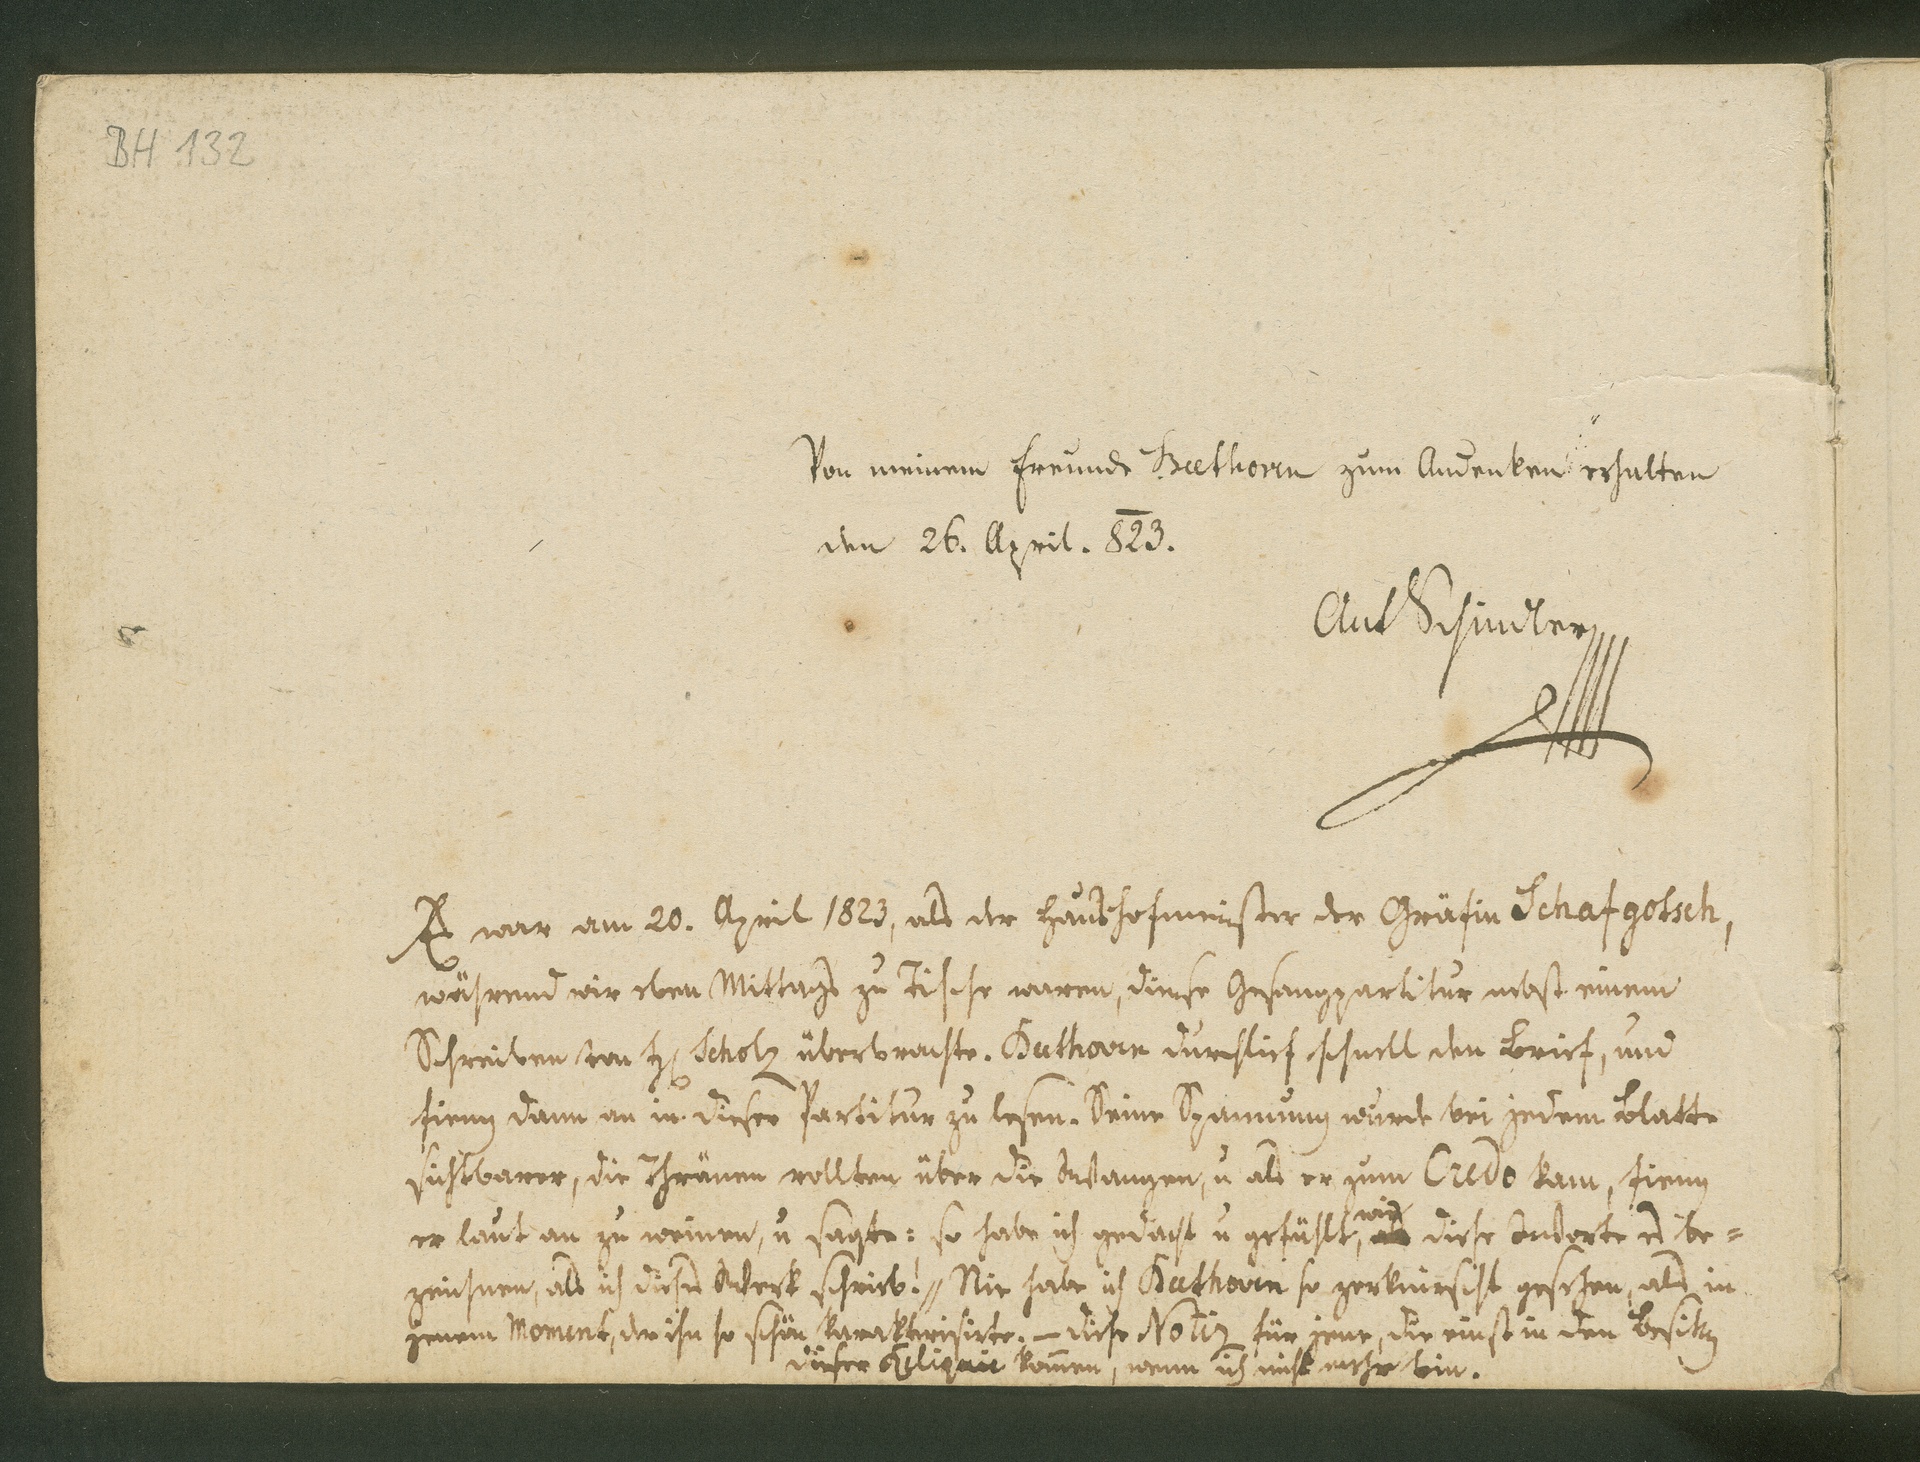 BH 132
Von meinem Freunde Beethoven zum Andenken erhalten
den 26. April. 823.
Ant Schindler
Es war am 20. April 1823, als der Haushofmeister der Gräfin Schafgotsch,
während wir eben Mittags zu Tische waren, diese Gesangpartitur nebst einem
Schreiben von H. Scholz überbrachte. Beethoven durchlief schnell den Brief, und
fieng dann an in dieser Partitur zu lesen. Seine Spannung wurde bei jedem Blatte
sichtbarer, die Thränen rollten über die Wangen, u als er zum Credo kam, fieng
er laut an zu weinen, u sagte: so habe ich gedacht u gefühlt, wie diese Worte es be=
zeichnen, als ich dieses Werk schrieb! // Nie habe ich Beethoven so zerknirscht gesehen, als in
jenem Moment, der ihn so schön karakterisirte. — diese Notiz für jene, die einst in den Besitz
dieser Reliquie kom̄en, wenn ich nicht mehr bin.